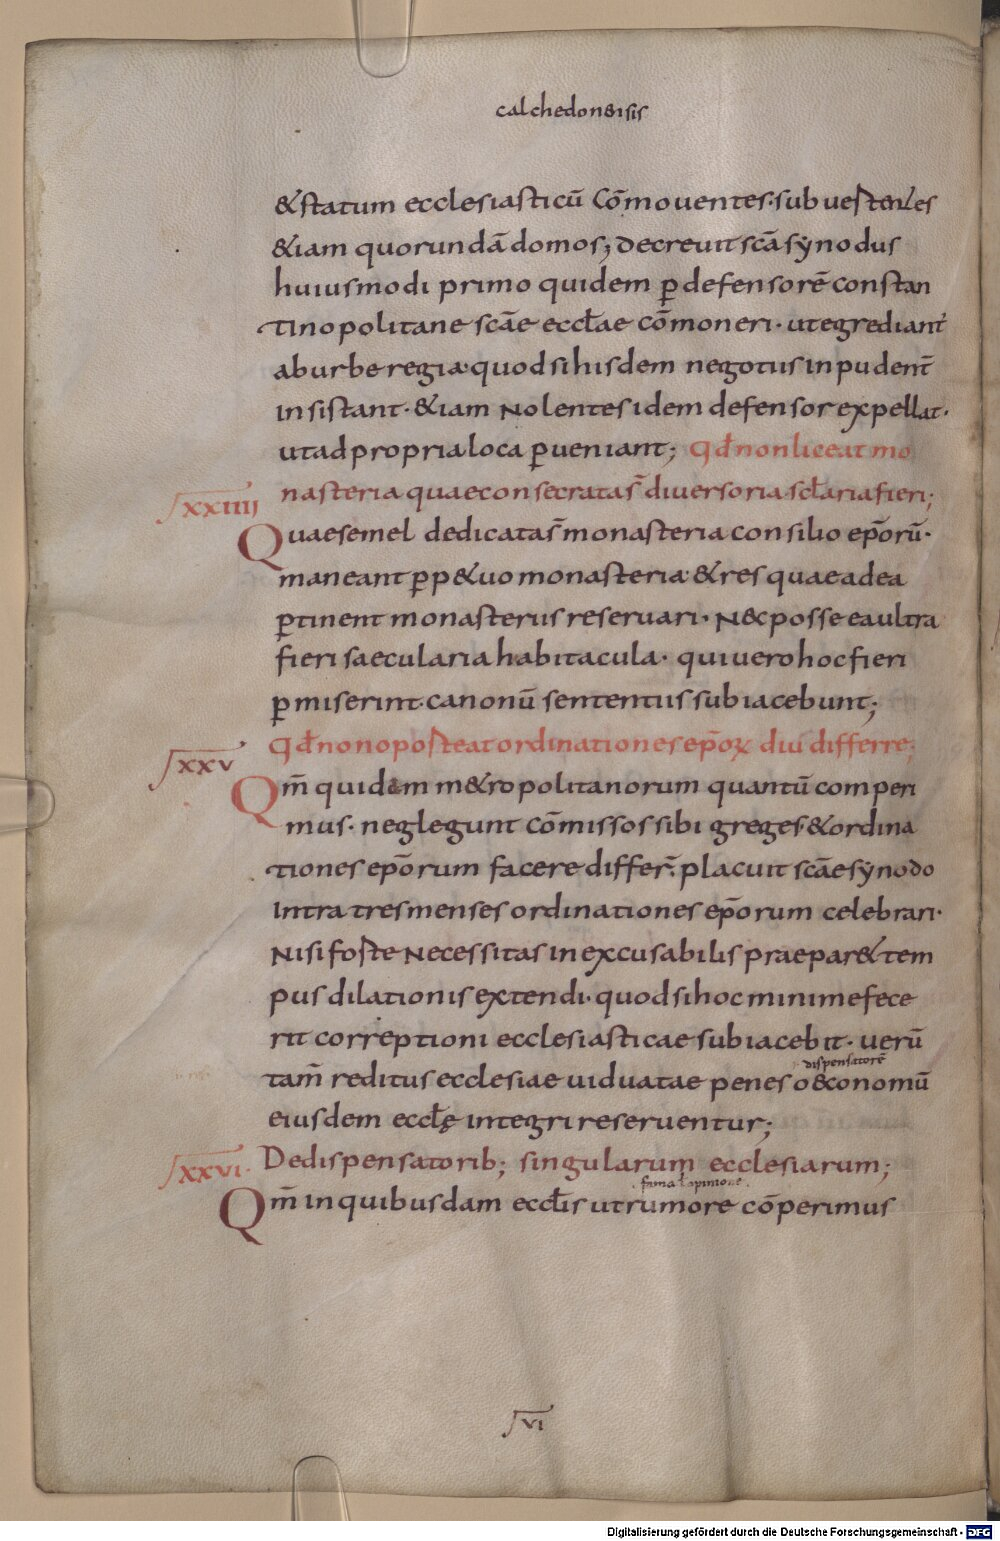 calchedon&isis
&statum ecclesiasticū cōmouentes·subuertentes
&iam quorundā domos; decreuit scā sẏnodus
huiusmodi primo quidem ꝑ defensorē constan
tinopolitane scāe eccłae cōmoneri· ut egrediant᷑
ab urbe regia· quod si hisdem negotiis inpudent̄
insistant· &iam Nolentes idem defensor expellat·
ut ad propria loca ꝑueniant; qđ non liceat mo
XXIIII nasteria quae consecrata s̄ diuersoria scłaria fieri;
Quae semel dedicata s̄ monasteria consilio ep̄orū·
maneant ꝑp&uo monasteria· &res quae ad ea
ꝑtinent monasteriis reseruari· N&posse ea ultra
fieri saecularia habitacula· qui uero hoc fieri
ꝑmiserint· canonū sententiis subiacebunt;
XXV qđ non oporteat ordinationes ep̄oꝝ diu differre;
Qm̄ quidam m&ropolitanorum quantū comperi
mus· neglegunt cōmissos sibi greges &ordina
tiones ep̄orum facere differ̄· placuit scāe sẏnodo
Intra tres menses ordinationes ep̄orum celebrari·
Nisi forte Necessitas inexcusabilis praepar& tem
pus dilationis extendi· quod si hoc minime fece
rit correptioni ecclesiasticae subiacebit· uerū
dispensatorē
tam̄ reditus ecclesiae uiduatae penes o&conomū
eiusdem eccłę integri reseruentur;
XXVI· De dispensatorib; singularum ecclesiarum;
fama ł opinione
Qm̄ in quibusdam eccłis ut rumore cōperimus
VI
Digitalisierung gefördert durch die Deutsche Forschungsgemeinschaft - DFG